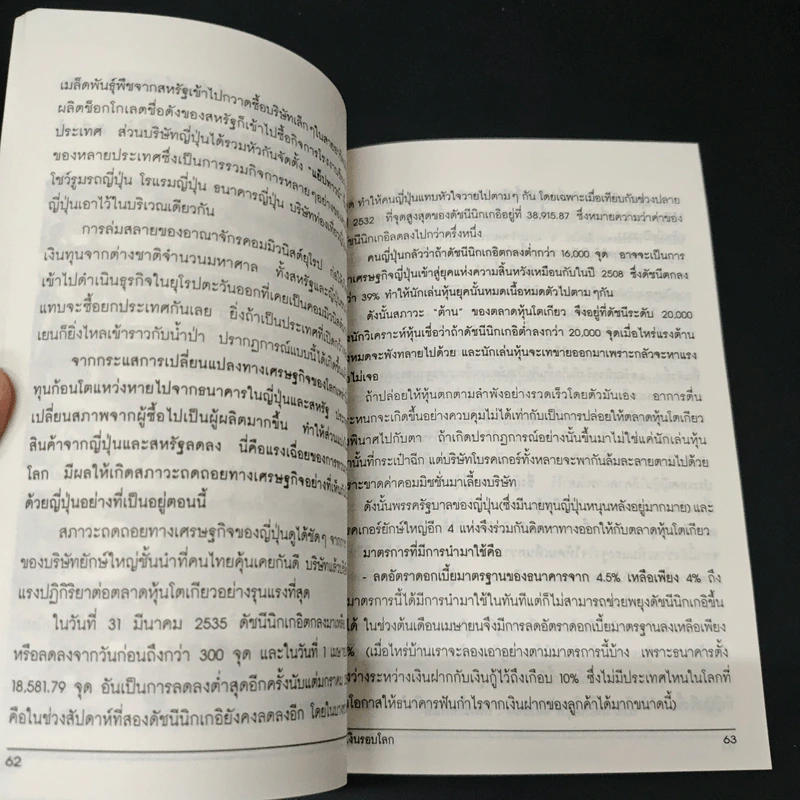 เมล็ดพันธุ์พืชจากสหรัฐเข้าไปกวาดซื้อบริษัทเล็กๆใน
ผลิตช็อกโกเลตชื่อดังของสหรัฐก็เข้าไปซื้อกิจการโรงงาน
ประเทศ ส่วนบริษัทญี่ปุ่นได้รวมหัวกันจัดตั้ง
ของหลายประเทศซึ่งเป็นการรวมกิจการหลายๆอย่าง
โชว์รูมรถญี่ปุ่น โรแรมญี่ปุ่น ธนาคารญี่ปุ่น บริษัทท่องเที่ยว
ญี่ปุ่นเอาไว้ในบริเวณเดียวกัน
การล่มสลายของอาณาจักรคอมมิวนิสต์ยุโรป
เงินทุนจากต่างชาติจำนวนมหาศาล ทั้งสหรัฐและญี่ปุ่น
เข้าไปดำเนินธุรกิจในยุโรปตะวันออกที่เคยเป็นคอมมิวนิสต์
แทบจะซื้อยกประเทศกันเลย ยิ่งถ้าเป็นประเทศที่เปิด
เยนก็ยิ่งไหลเข้าราวกับน้ำป่า ปรากฏการณ์แบบนี้ได้เกิดขึ้น
จากกระแสการเปลี่ยนแปลงทางเศรษฐกิจของโลก
ทุนก้อนโตแหว่งหายไปจากธนาคารในญี่ปุ่นและสหรัฐ
เปลี่ยนสภาพจากผู้ซื้อไปเป็นผู้ผลิตมากขึ้น ทำให้
สินค้าจากญี่ปุ่นและสหรัฐลดลง นี่คือแรงเฉื่อยของการ
โลก มีผลให้เกิดสภาวะถดถอยทางเศรษฐกิจอย่างที่
ด้วยญี่ปุ่นอย่างที่เป็นอยู่ตอนนี้
สภาวะถดถอยทางเศรษฐกิจของญี่ปุ่นดูได้ชัดๆ จาก
ของบริษัทยักษ์ใหญ่ชั้นนำที่คนไทยคุ้นเคยกันดี บริษัทแล้ว
แรงปฏิกิริยาต่อตลาดหุ้นโตเกียวอย่างรุนแรงที่สุด
ในวันที่ 31 มีนาคม 2535 ดัชนีนิกเกอิตกลงมา
หรือลดลงจากวันก่อนถึงกว่า 300 จุด และในวันที่ 1
18,581.79 จุด อันเป็นการลดลงต่ำสุดอีกครั้งนับแต่
คือในช่วงสัปดาห์ที่สองดัชนีนิกเกอิยังคงลดลงอีก โดย
62
ทำให้คนญี่ปุ่นแทบหัวใจวายไปตามๆ กัน โดยเฉพาะเมื่อเทียบกับช่วงปลาย
2532 ที่จุดสูงสุดของดัชนีนิกเกอิอยู่ที่ 38,915.87 ซึ่งหมายความว่าค่าของ
ดัชนีนิกเกอิลดลงไปกว่าครึ่งหนึ่ง
คนญี่ปุ่นกลัวว่าถ้าดัชนีนิกเกอิตกลงต่ำกว่า 16,000 จุด อาจจะเป็นการ
เศรษฐกิจญี่ปุ่นเข้าสู่ยุคแห่งความสิ้นหวังเหมือนกับในปี 2508 ซึ่งดัชนีตกลง
ว่า 39% ทำให้นักเล่นหุ้นยุคนั้นหมดเนื้อหมดตัวไปตามๆกัน
ดังนั้นสภาวะ "ต้าน" ของตลาดหุ้นโตเกียว จึงอยู่ที่ดัชนีระดับ 20,000
นักวิเคราะห์หุ้นเชื่อว่าถ้าดัชนีนิกเกอิต่ำลงกว่า 20,000 จุดเมื่อไหร่แรงต้าน
หมดจะพังทลายไปด้วย และนักเล่นหุ้นจะเทขายออกมาเพราะกลัวจะหาแรง
ไม่เจอ
ถ้าปล่อยให้หุ้นตกตามลำพังอย่างรวดเร็วโดยตัวมันเอง อาการตื่น
ตระหนกจะเกิดขึ้นอย่างควบคุมไม่ได้เท่ากับเป็นการปล่อยให้ตลาดหุ้นโตเกียว
พินาศไปกับตา ถ้าเกิดปรากฏการณ์อย่างนั้นขึ้นมาไม่ใช่แค่นักเล่นหุ้น
านั้นที่กระเป๋าฉีก แต่บริษัทโบรคเกอร์ทั้งหลายจะพากันล้มละลายตามไปด้วย
ราะขาดค่าคอมมิชชั่นมาเลี้ยงบริษัท
ดังนั้นพรรครัฐบาลของญี่ปุ่น(ซึ่งมีนายทุนญี่ปุ่นหนุนหลังอยู่มากมาย) และ
คเกอร์ยักษ์ใหญ่อีก 4 แห่งจึงร่วมกันคิดหาทางออกให้กับตลาดหุ้นโตเกียว
มาตรการที่มีการนำมาใช้คือ
- ลดอัตราดอกเบี้ยมาตรฐานของธนาคารจาก 4.5% เหลือเพียง 4% ถึง
มาตรการนี้ได้มีการนำมาใช้ในทันทีแต่ก็ไม่สามารถช่วยพยุงดัชนีนิกเกอิขึ้น
ได้ ในช่วงต้นเดือนเมษายนจึงมีการลดอัตราดอกเบี้ยมาตรฐานลงเหลือเพียง
% (เมื่อไหร่บ้านเราจะลองเอาอย่างตามมาตรการนี้บ้าง เพราะธนาคารตั้ง
ว่างระหว่างเงินฝากกับเงินกู้ไว้ถึงเกือบ 10% ซึ่งไม่มีประเทศไหนในโลกที่
โอกาสให้ธนาคารฟันกำไรจากเงินฝากของลูกค้าได้มากขนาดนี้)
เงินรอบโลก
63